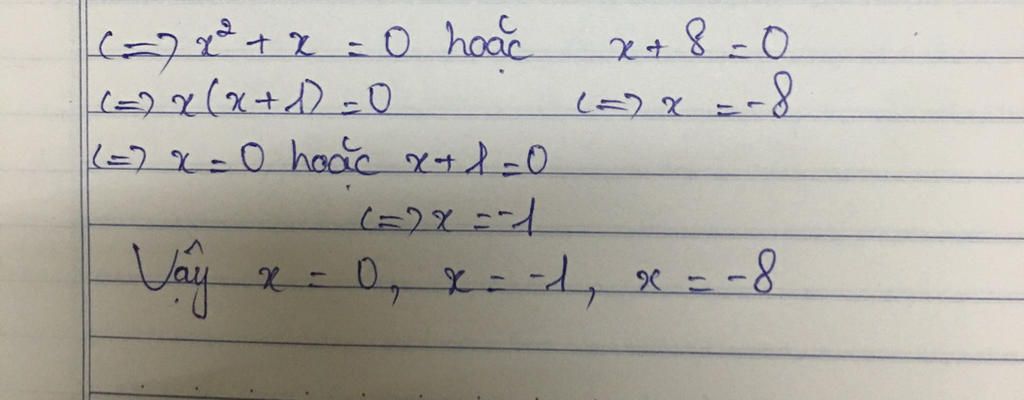 (=) x² + x = 0 hoặc x + 8 = 0
(=) x(x+1) = 0 (=) x = -8
(=) x = 0 hoặc x + 1 = 0
(=) x = -1
Vậy x = 0, x = -1, x = -8